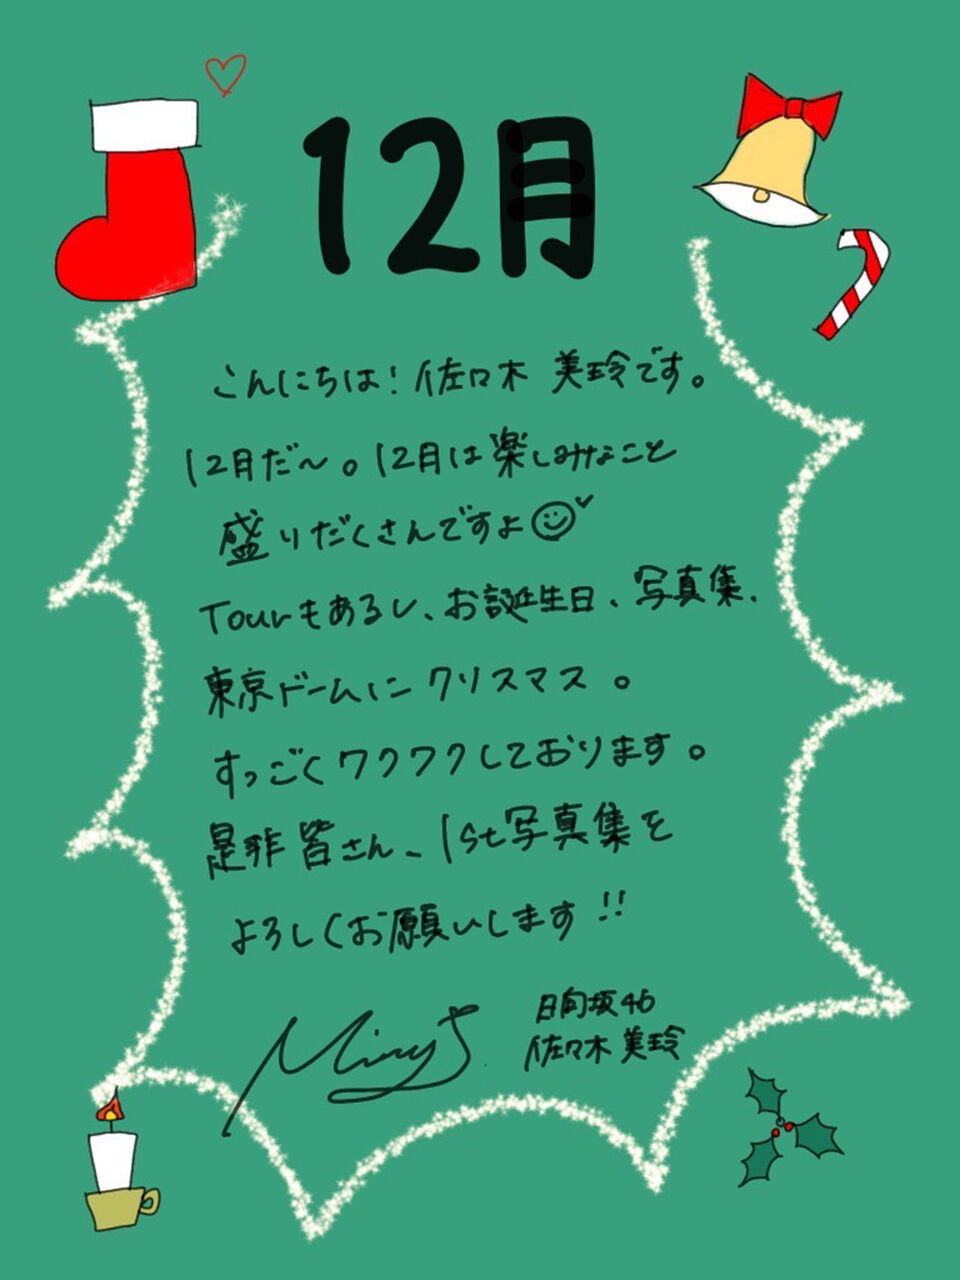 12月
こんにちは！佐々木 美玲です。
12月だ〜。12月は楽しみなこと
盛りだくさんですよ
Tourもあるし、お誕生日、写真集、
東京ドームにクリスマス。
すっごくワクワクしております。
是非皆さん、1st写真集を
よろしくお願いします!!
日向坂46
佐々木 美玲